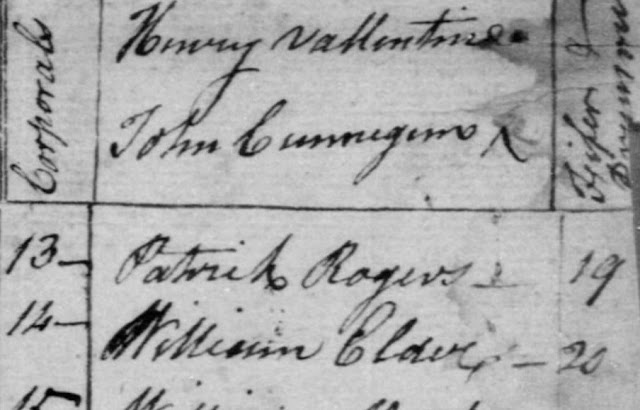 Corporals
Henry Vallentine
John Cunnegim
Fifer &
13 Patrick Rogers 19
14 William Elder 20
15 William